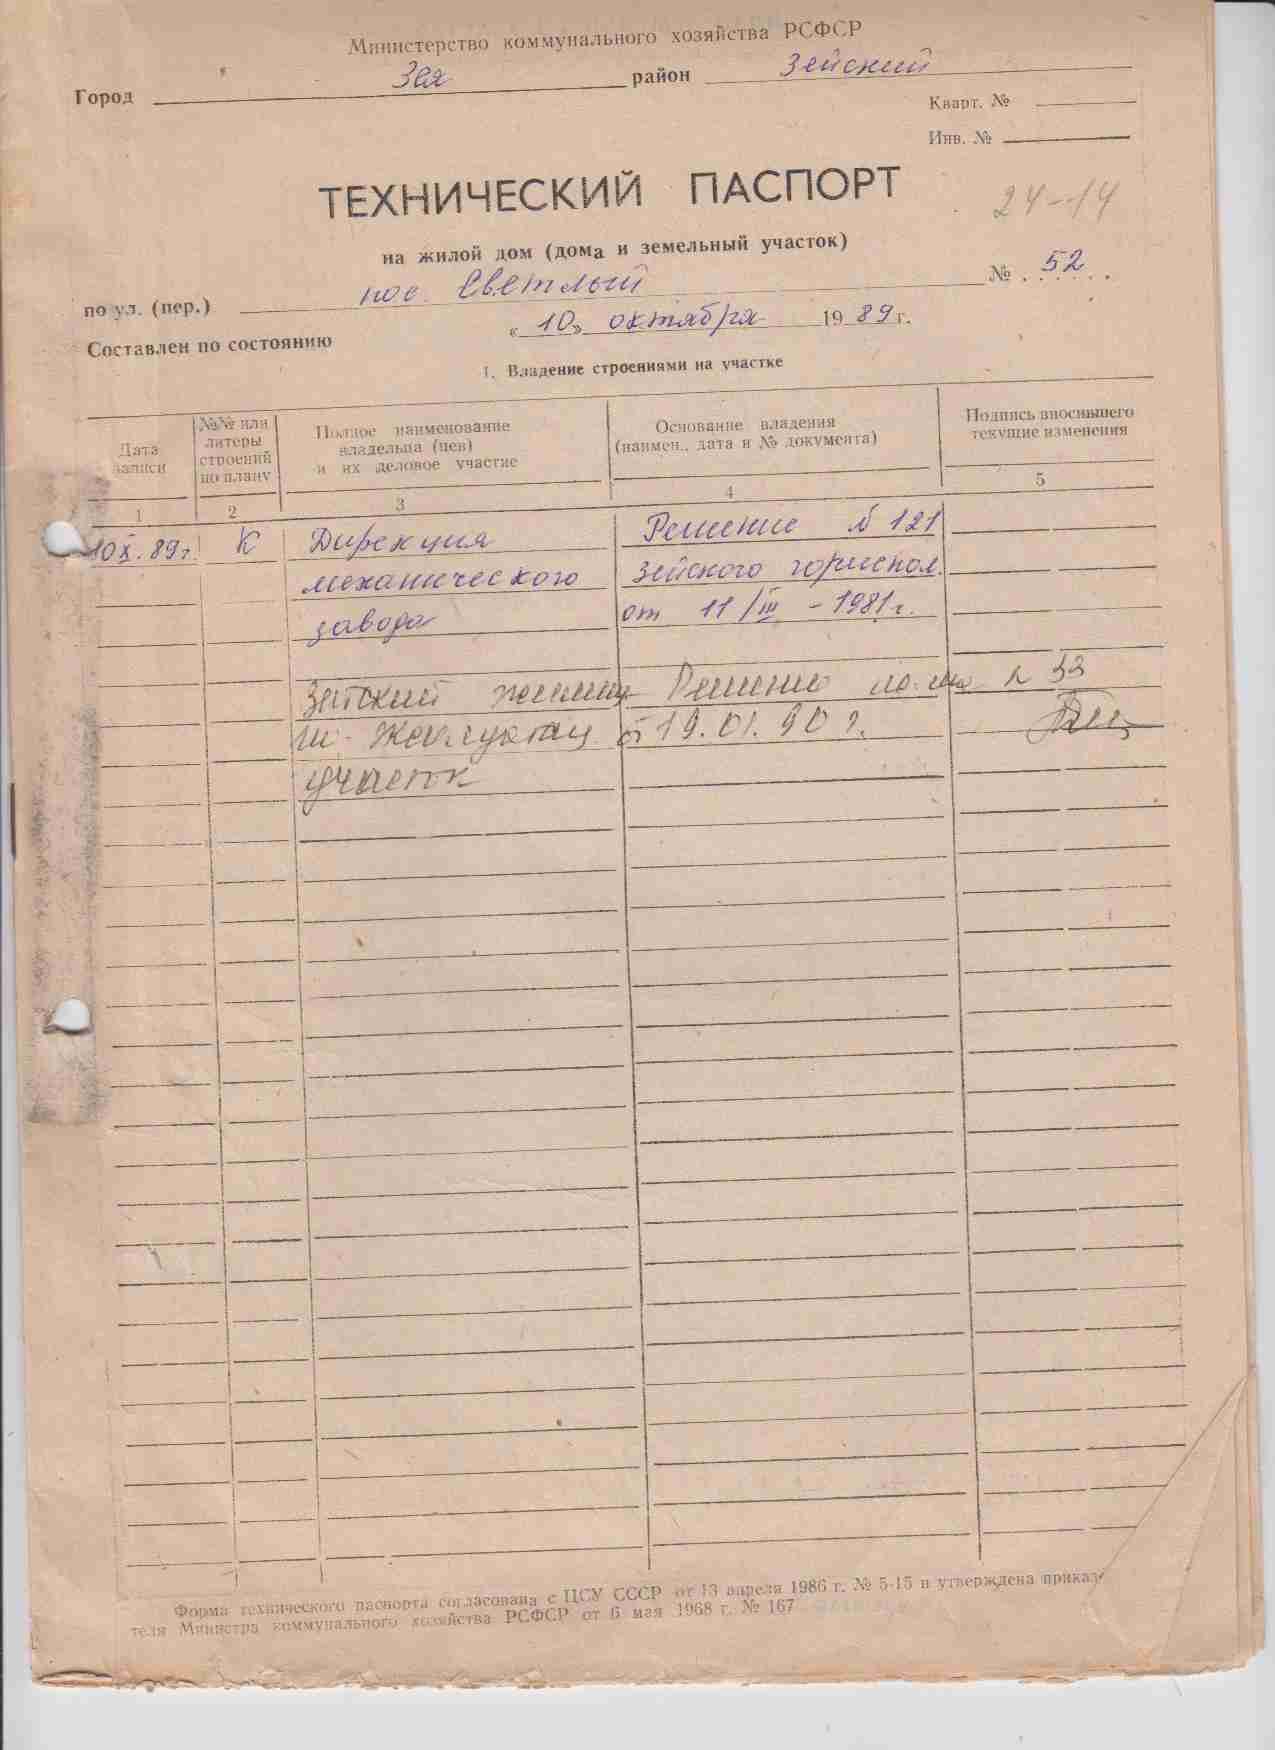 Министерство коммунального хозяйства РСФСР
Город Зея район Зейский
Кварт. №
Инв. №
ТЕХНИЧЕСКИЙ ПАСПОРТ
24-14
на жилой дом (дома и земельный участок)
по ул. (пер.) пос. Светлый № 52
Составлен по состоянию « 10 » октября 19 89 г.
I. Владение строениями на участке
Дата записи
№№ или литеры строений по плану
Полное наименование владельца (цев) и их деловое участие
Основание владения (наимен., дата и № документа)
Подпись вносившего текущие изменения
1 2 3 4 5
10 X. 89 г. К Дирекция Решение № 121
механического Зейского горисполк.
завода от 11/III - 1981 г.
Зейский Решение № 33
от 19.01.90 г.
участок
Форма технического паспорта согласована с ЦСУ СССР от 13 апреля 1986 г. № 5-15 и утверждена приказ
теля Министра коммунального хозяйства РСФСР от 6 мая 1968 г. № 167